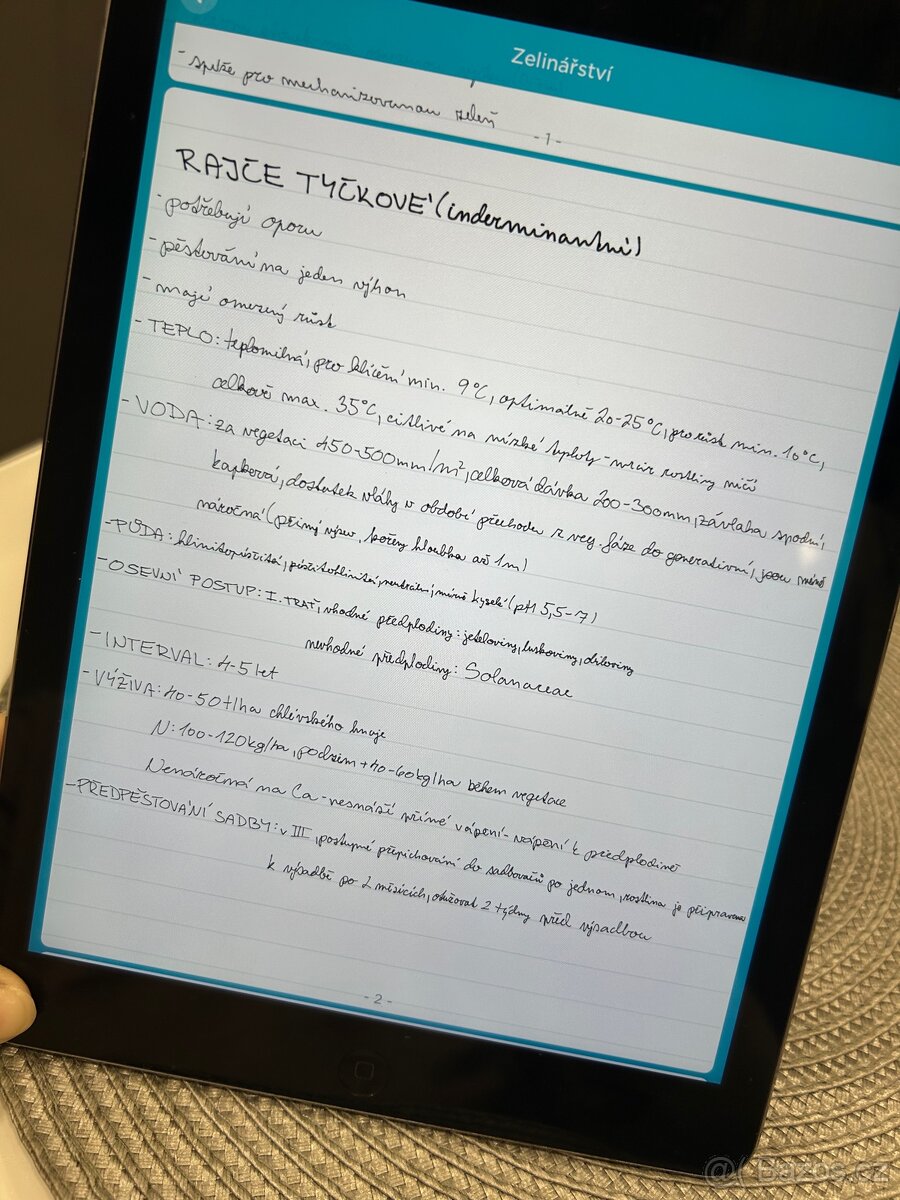 Zelinářství
- spíše pro mechanizovanou zeleň
- 1 -
RAJČE TYČKOVÉ (inderminantní)
- potřebují oporu
- pěstování na jeden výhon
- mají omezený růst
- TEPLO: teplomilná, pro klíčení min. 9°C, optimálně 20-25°C, pro růst min. 10°C,
celkově max. 35°C, citlivé na nízké teploty - mráz rostliny ničí
- VODA: za vegetaci 450-500mm/m², celková dávka 200-300mm, závlaha spodní,
kapková, dostatek vláhy v období přechodu z veg. fáze do generativní, jsou méně
náročná (přímý výsev, kořeny hloubka až 1m)
- PŮDA: hlinitopísčitá, písčitohlinitá, neutrální, mírně kyselé (pH 5,5-7)
- OSEVNÍ POSTUP: I. TRAŤ, vhodné předplodiny: jeteloviny, luskoviny, obiloviny
nevhodné předplodiny: Solanaceae
- INTERVAL: 4-5 let
- VÝŽIVA: 40-50t/ha chlévského hnoje
N: 100-120kg/ha, podzim + 40-60kg/ha během vegetace
Nenáročná na Ca - nesnáší přímé vápení - vápění k předplodině
- PŘEDPĚSTOVÁNÍ SADBY: v III, postupné přepichování do sadbovačů po jednom, rostlina je připravena
k výsadbě po 2 měsících, otužovat 2 týdny před výsadbou
- 2 -
Bazos.cz